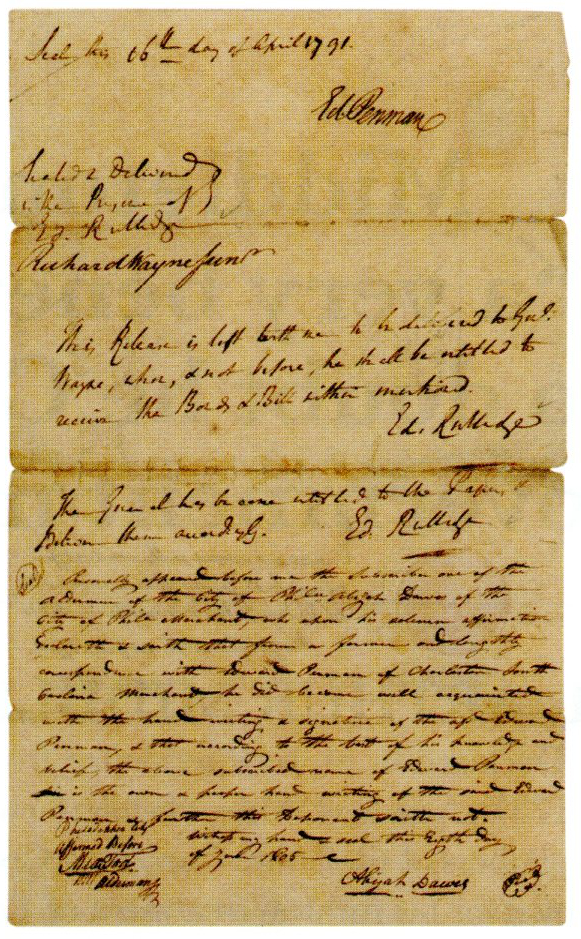 Seal, this 16th day of April 1791.
Ed Penman
Sealed & Delivered
in the Presence of
Ed. Rutledge
Richard Wayne Junr
This Release is left with me to be delivered to Genl.
Wayne, when, & not before, he shall be entitled to
receive the Bonds & Bill within mentioned.
Ed. Rutledge
The General has become entitled to the Papers, I
Deliver them accordingly. Ed. Rutledge
Personally appeared before me the Subscriber one of the
Aldermen of the City of Phila Abijah Dawes of the
City of Phila Merchant, who upon his solemn affirmation
declareth & saith that from a former and lengthy
correspondence with Edward Penman of Charleston South
Carolina Merchant, he did become well acquainted
with the hand writing & signature of the Edward
Penman, & that according to the best of his knowledge and
belief, the above subscribed name of Edward Penman
is the own & proper hand writing of the said Edward
Penman & further this Deponent saith not.
Philadelphia City
Affirmed Before
Alderman
Witness my hand & seal this Eighth day
of 1805
Abijah Dawes